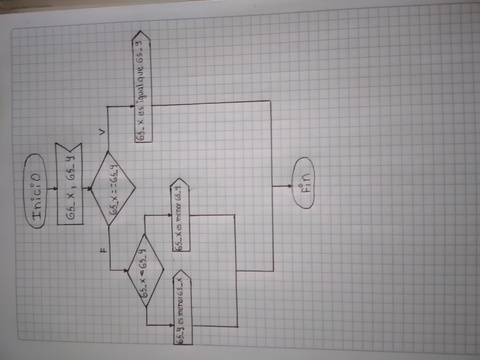 Inicio
GS_x, GS_y
GS_x==GS_y
F
V
GS_x es igual que GS_y
GS_y es menor GS_x
GS_x es menor GS_y
Fin